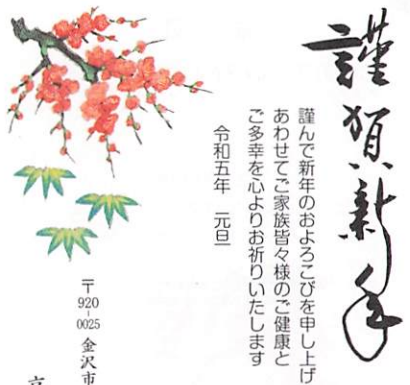 謹賀新年
謹んで新年のおよろこびを申し上げ
あわせてご家族皆々様のご健康と
ご多幸を心よりお祈りいたします
令和五年　元旦
〒920-0025　金沢市